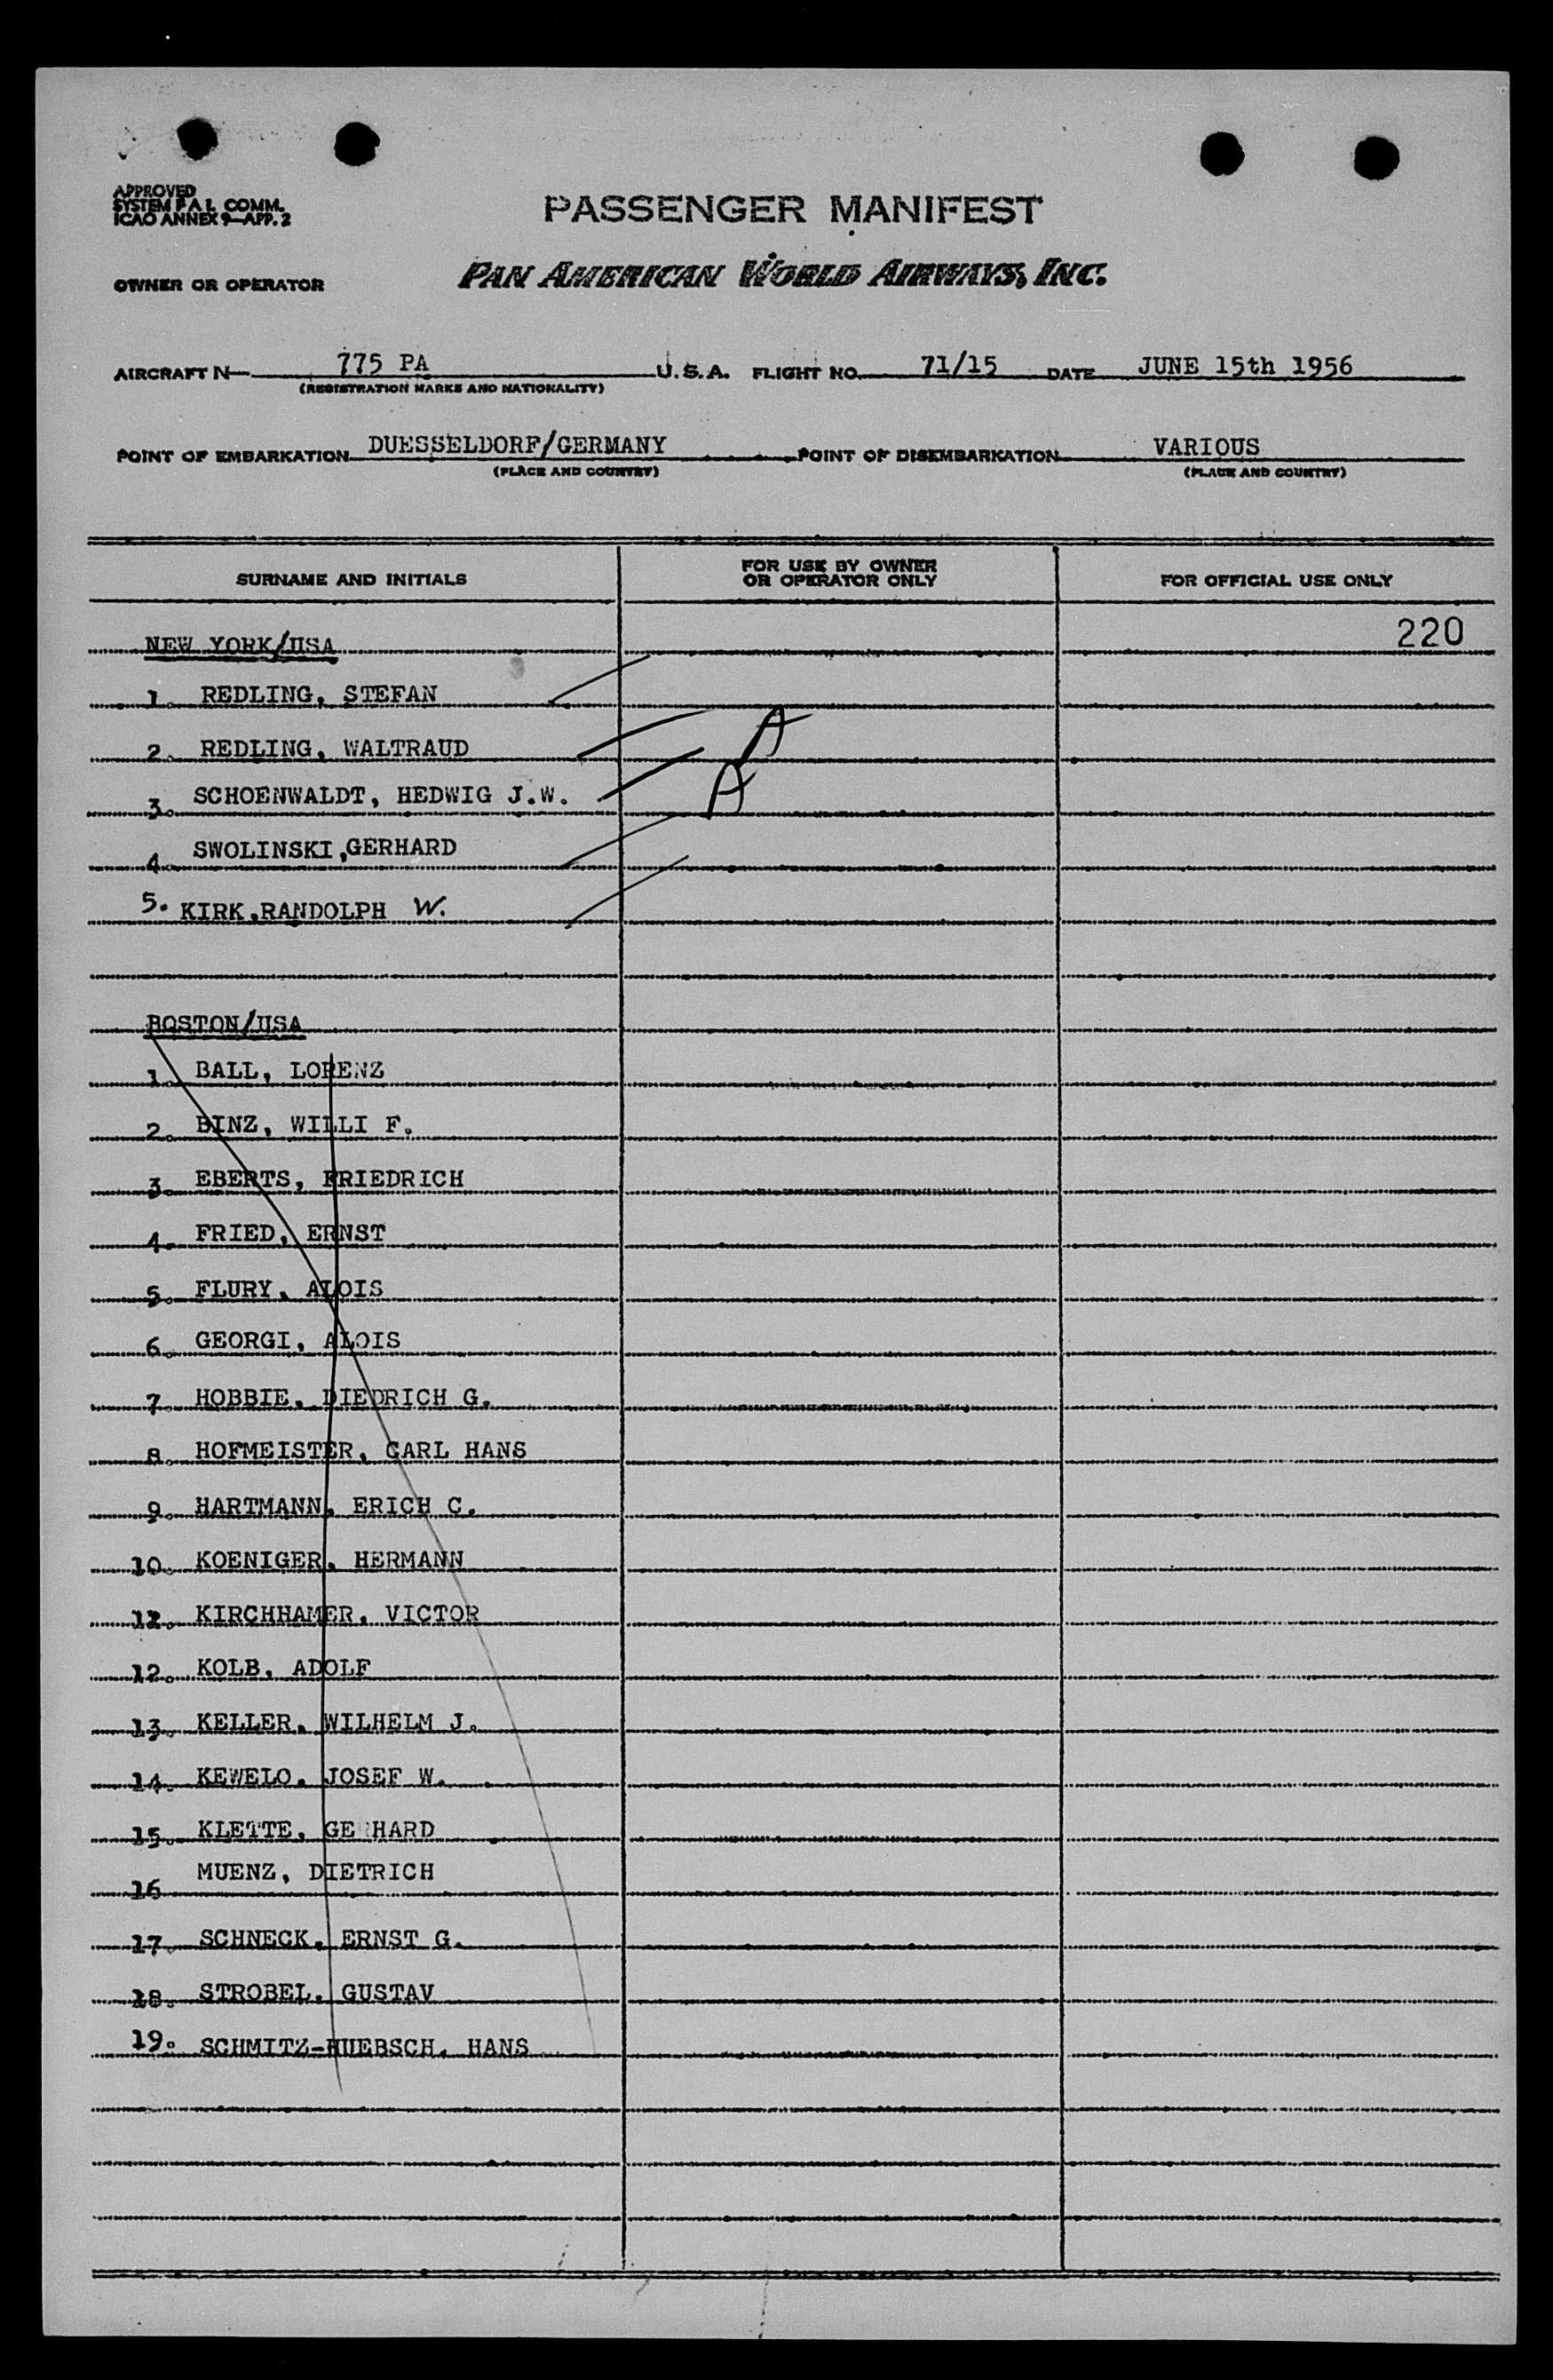 APPROVED
SYSTEM F A L COMM.
ICAO ANNEX 9—APP. 2
PASSENGER MANIFEST
OWNER OR OPERATOR
PAN AMERICAN WORLD AIRWAYS, INC.
AIRCRAFT N 775 PA U.S.A. FLIGHT NO. 71/15 DATE JUNE 15th 1956
(REGISTRATION MARKS AND NATIONALITY)
POINT OF EMBARKATION DUESSELDORF/GERMANY POINT OF DISEMBARKATION VARIOUS
(PLACE AND COUNTRY) (PLACE AND COUNTRY)
SURNAME AND INITIALS
FOR USE BY OWNER
OR OPERATOR ONLY
FOR OFFICIAL USE ONLY
NEW YORK/USA 220
1. REDLING, STEFAN
2. REDLING, WALTRAUD A
3. SCHOENWALDT, HEDWIG J.W. A
4. SWOLINSKI,GERHARD
5. KIRK,RANDOLPH W.
BOSTON/USA
1. BALL, LORENZ
2. BINZ, WILLI F.
3. EBERTS, FRIEDRICH
4. FRIED, ERNST
5. FLURY, ALOIS
6. GEORGI, ALOIS
7. HOBBIE, DIEDRICH G.
8. HOFMEISTER, CARL HANS
9. HARTMANN, ERICH C.
10. KOENIGER, HERMANN
11. KIRCHHAMER, VICTOR
12. KOLB, ADOLF
13. KELLER, WILHELM J.
14. KEWELO, JOSEF W.
15. KLETTE, GERHARD
16 MUENZ, DIETRICH
17. SCHNECK, ERNST G.
18. STROBEL, GUSTAV
19. SCHMITZ-HUEBSCH, HANS